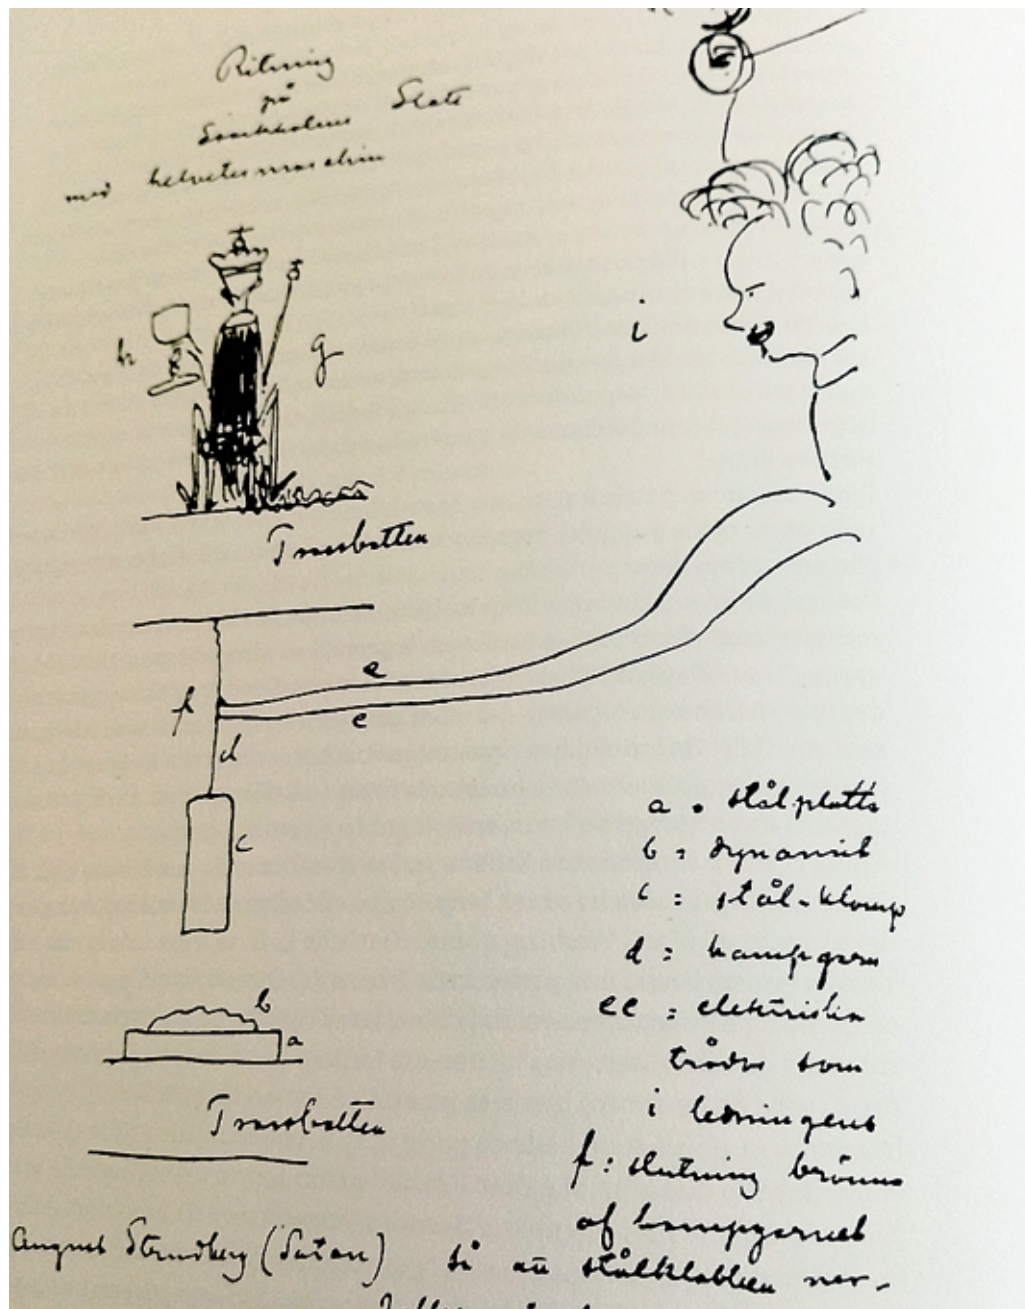 Ritning
på
Stockholms Slott
med helvetesmaschin
h
g
i
Trossbotten
e
f
e
d
c
b
a
Trossbotten
a = stålplatta
b = dynamit
c = stål-klump
d = hampgarn
ee = elektriska
trådar som
i ledningens
f = slutning bränna
af hampgarnet
August Strindberg (Satan) så att stålklabben ner-